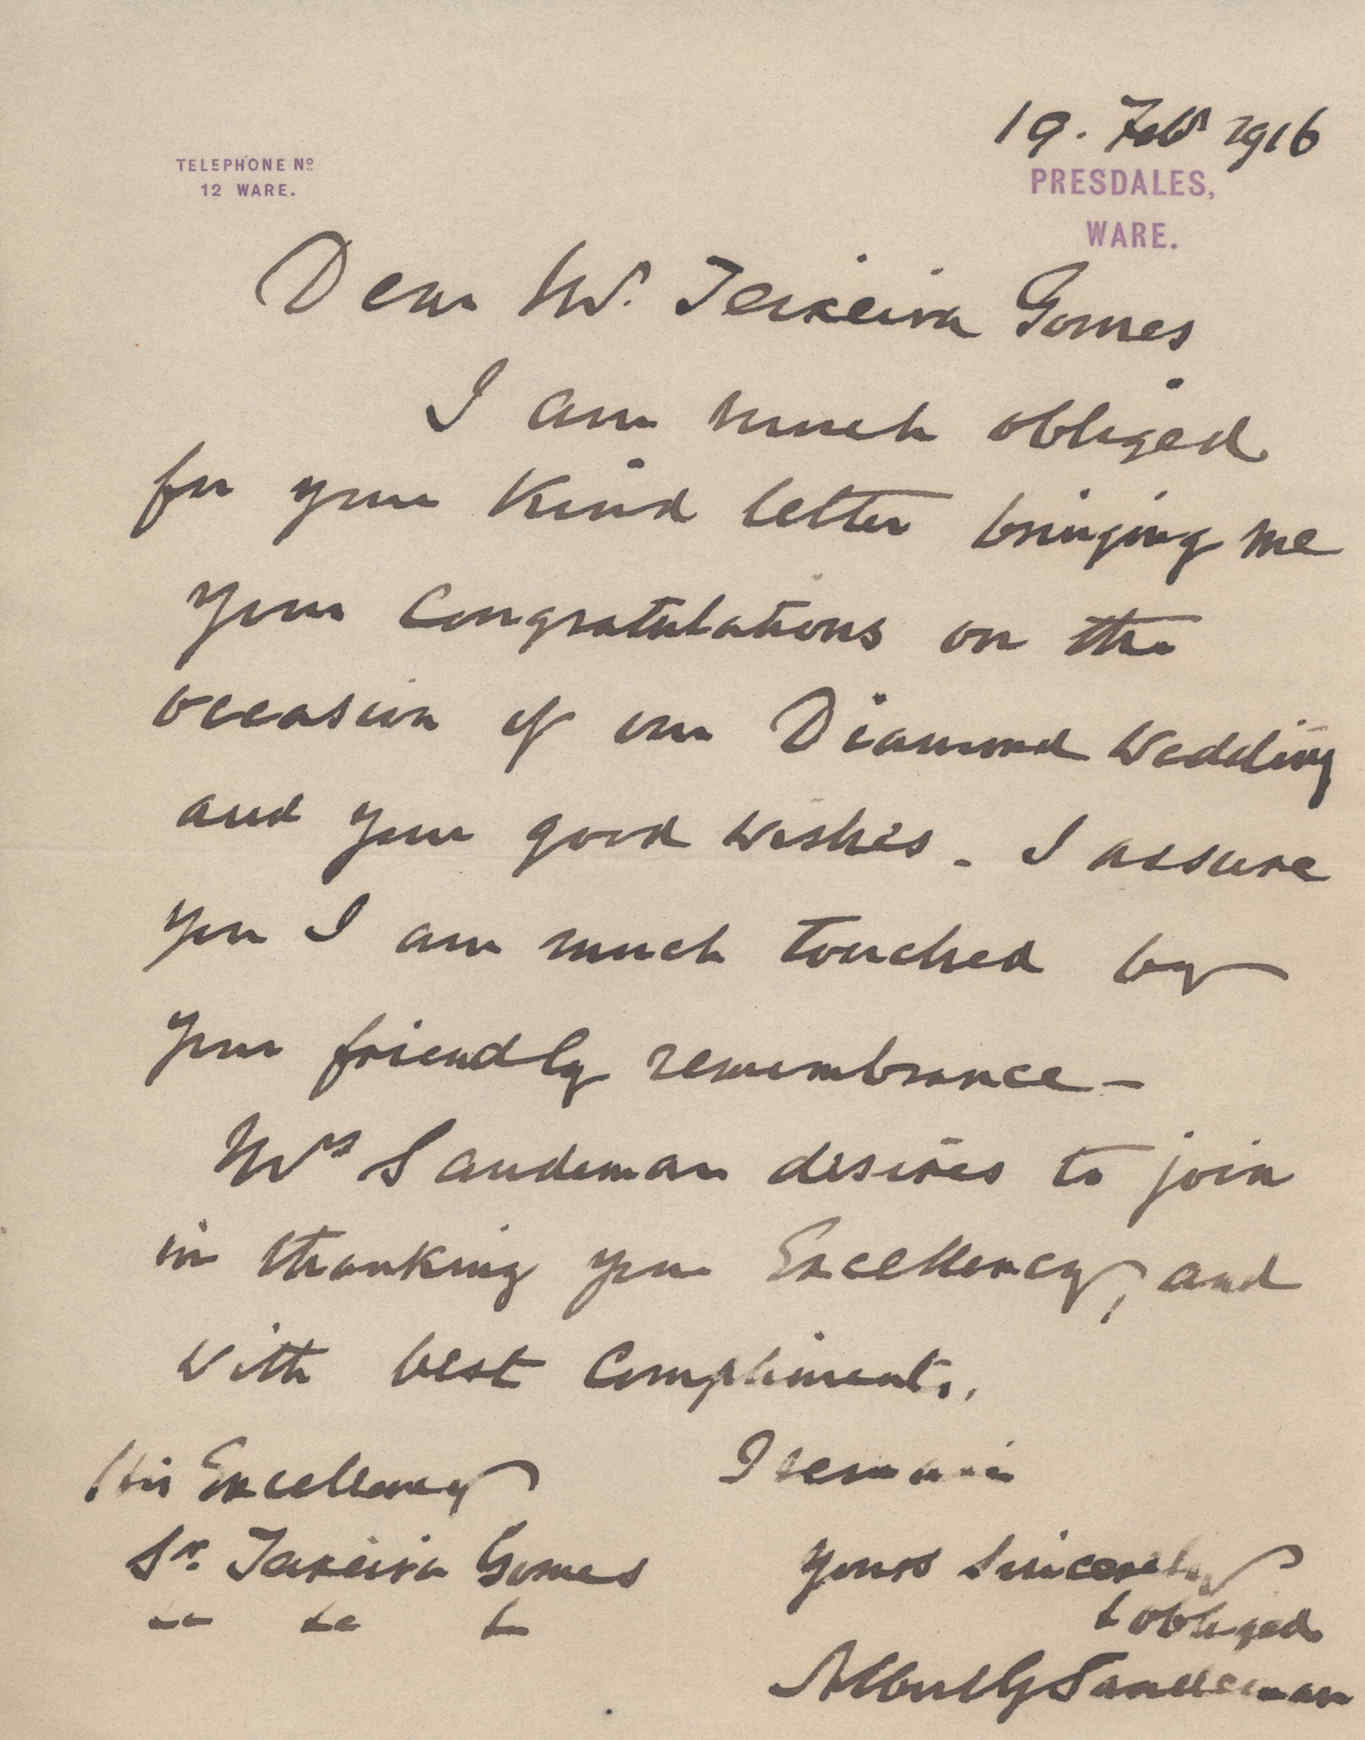 19. Feb 1916
TELEPHONE Nº
12 WARE.
PRESDALES,
WARE.
Dear Mr. Teixeira Gomes
I am much obliged
for your kind letter bringing me
your congratulations on the
occasion of our Diamond Wedding
and your good wishes - I assure
you I am much touched by
your friendly remembrance -
Mrs Sandeman desires to join
in thanking your Excellency, and
with best compliments,
I remain
His Excellency
Sr. Teixeira Gomes
Yours sincerely
& obliged
Albert G Sandeman